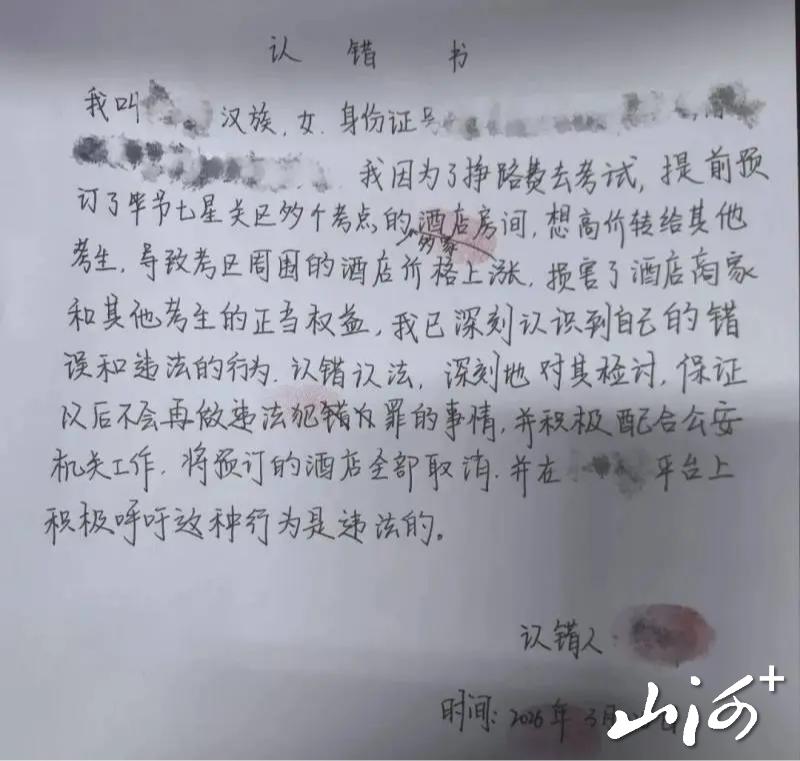 认错书
我叫 汉族,女.身份证号
我因为了挣路费去考试,提前预
订了毕节七星关区多个考点的酒店房间,想高价转给其他
多家
考生,导致考区周围的酒店价格上涨,损害了酒店商家
和其他考生的正当权益,我已深刻认识到自己的错
误和违法的行为.认错认法,深刻地对其检讨,保证
以后不会再做违法犯错 罪的事情,并积极配合公安
机关工作.将预订的酒店全部取消.并在 平台上
积极呼吁这种行为是违法的。
认错人
时间:2026年3月 日
山河+